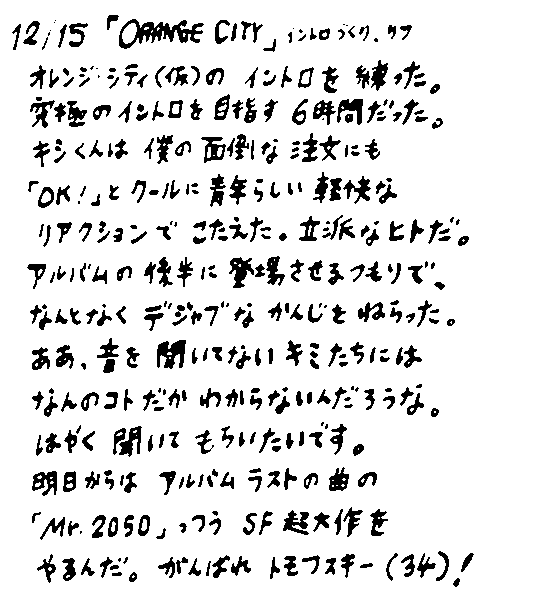 12/15 「ORANGE CITY」イントロづくり、ラフ
オレンジ・シティ(仮)の イントロを 練った。
究極のイントロを目指す 6時間だった。
キシくんは 僕の 面倒な 注文にも
「OK!」と クールに 青年らしい 軽快な
リアクションで こたえた。立派なヒトだ。
アルバムの 後半に 登場させるつもりで、
なんとなく デジャブな かんじを ねらった。
ああ、音を 聞いてない キミたちには
なんのコトだか わからないんだろうな。
はやく 聞いて もらいたいです。
明日からは アルバム ラストの 曲の
「Mr.2050」っつう SF 超大作を
やるんだ。がんばれ トモフスキー(34)!